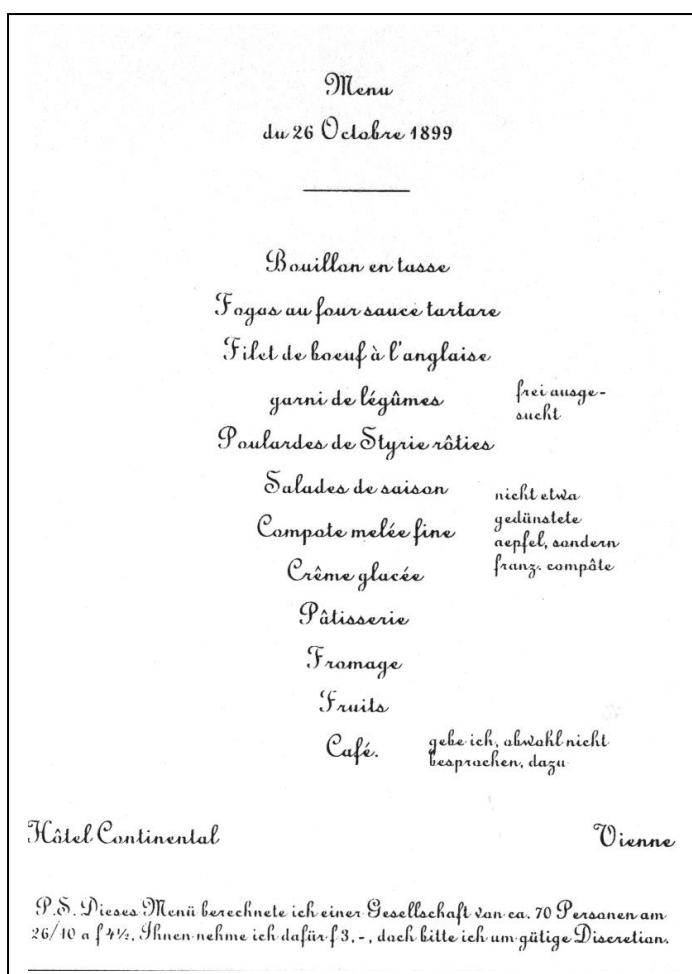 Menu
du 26 Octobre 1899
Bouillon en tasse
Fogas au four sauce tartare
Filet de boeuf à l'anglaise
garni de légûmes
frei ausge-
sucht
Poulardes de Styrie rôties
Salades de saison
Compote melée fine
nicht etwa
gedünstete
aepfel, sondern
franz. compôte
Crême glacée
Pâtisserie
Fromage
Fruits
Café.
gebe ich, obwohl nicht
besprochen, dazu
Hôtel Continental
Vienne
P.S. Dieses Menü berechnete ich einer Gesellschaft von ca. 70 Personen am
26/10 a f 4½, Ihnen nehme ich dafür f 3,-, doch bitte ich um gütige Discretion.